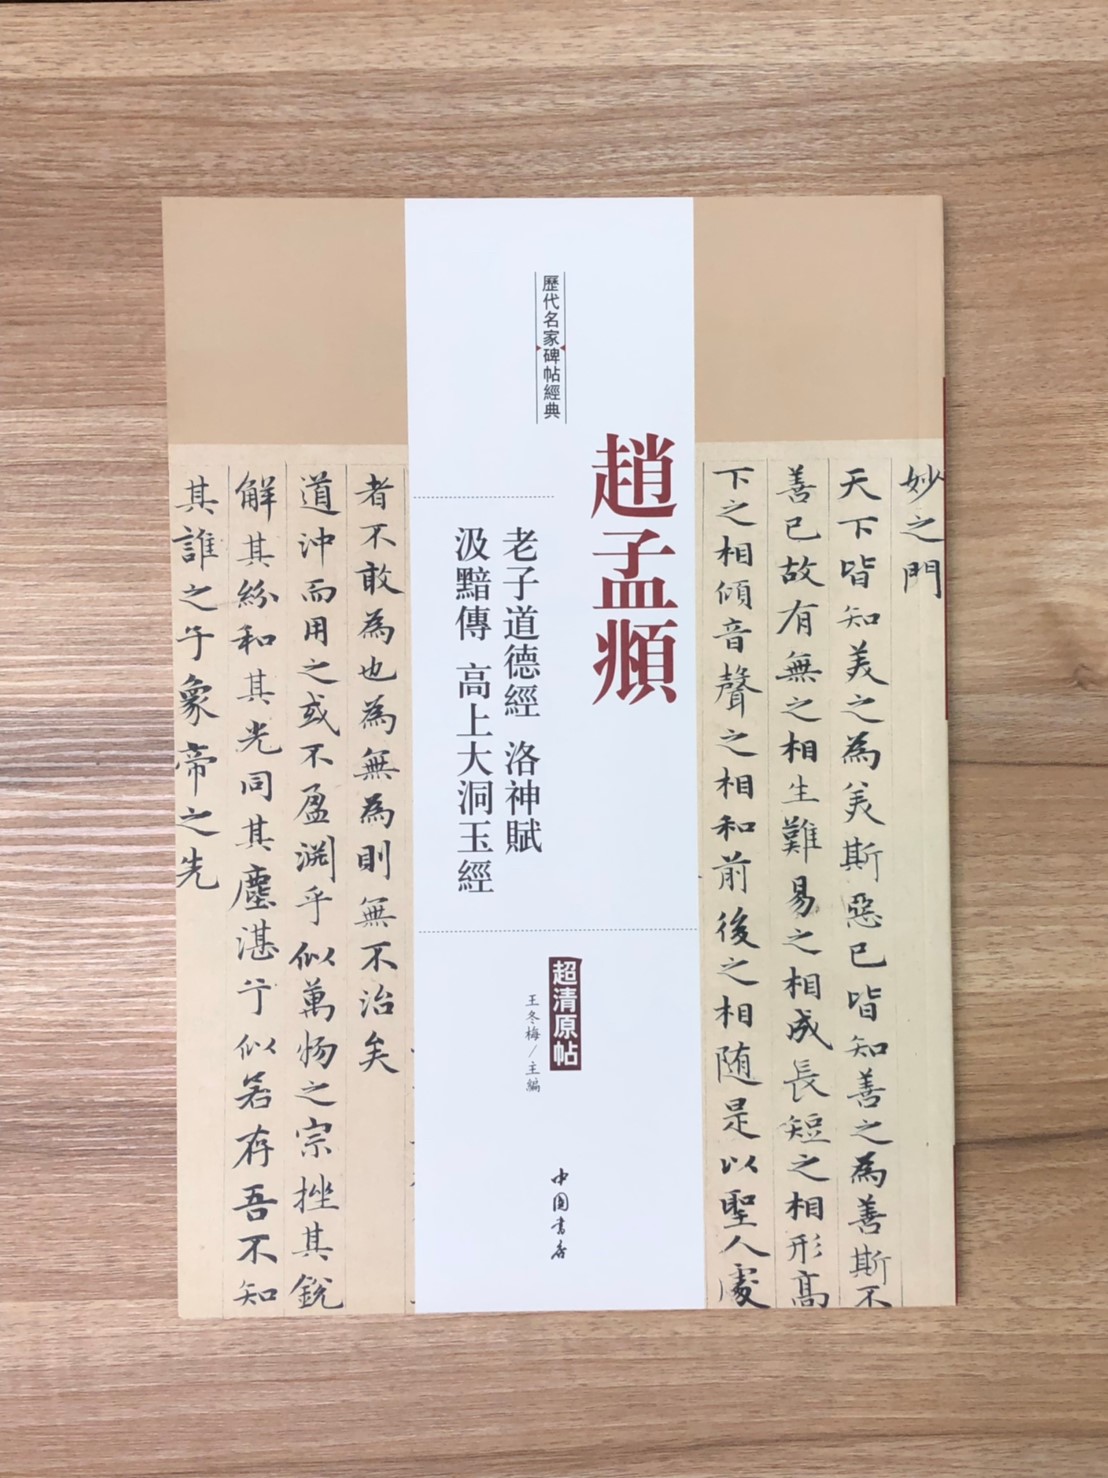 歷代名家碑帖經典
趙孟頫
老子道德經 洛神賦
汲黯傳 高上大洞玉經
超清原帖
王冬梅/主編
中国書店
妙之門
天下皆知美之為美斯惡已皆知善之為善斯不
善已故有無之相生難易之相成長短之相形高
下之相傾音聲之相和前後之相随是以聖人處
者不敢為也為無為則無不治矣
道沖而用之或不盈淵乎似萬物之宗挫其銳
解其紛和其光同其塵湛兮似若存吾不知
其誰之子象帝之先